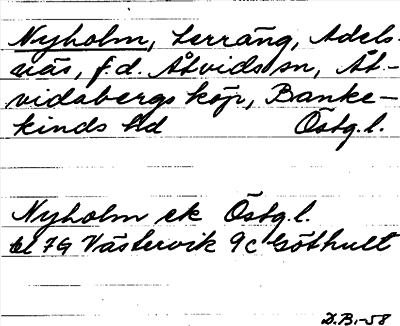 Nyholm, terräng, Adels-
näs, f.d. Åtvids sn, Åt-
vidabergs köp, Banke-
kinds hd Östg.l.
Nyholm ek Östg.l.
bl 7G Västervik 9c Göthult
D.B.-58